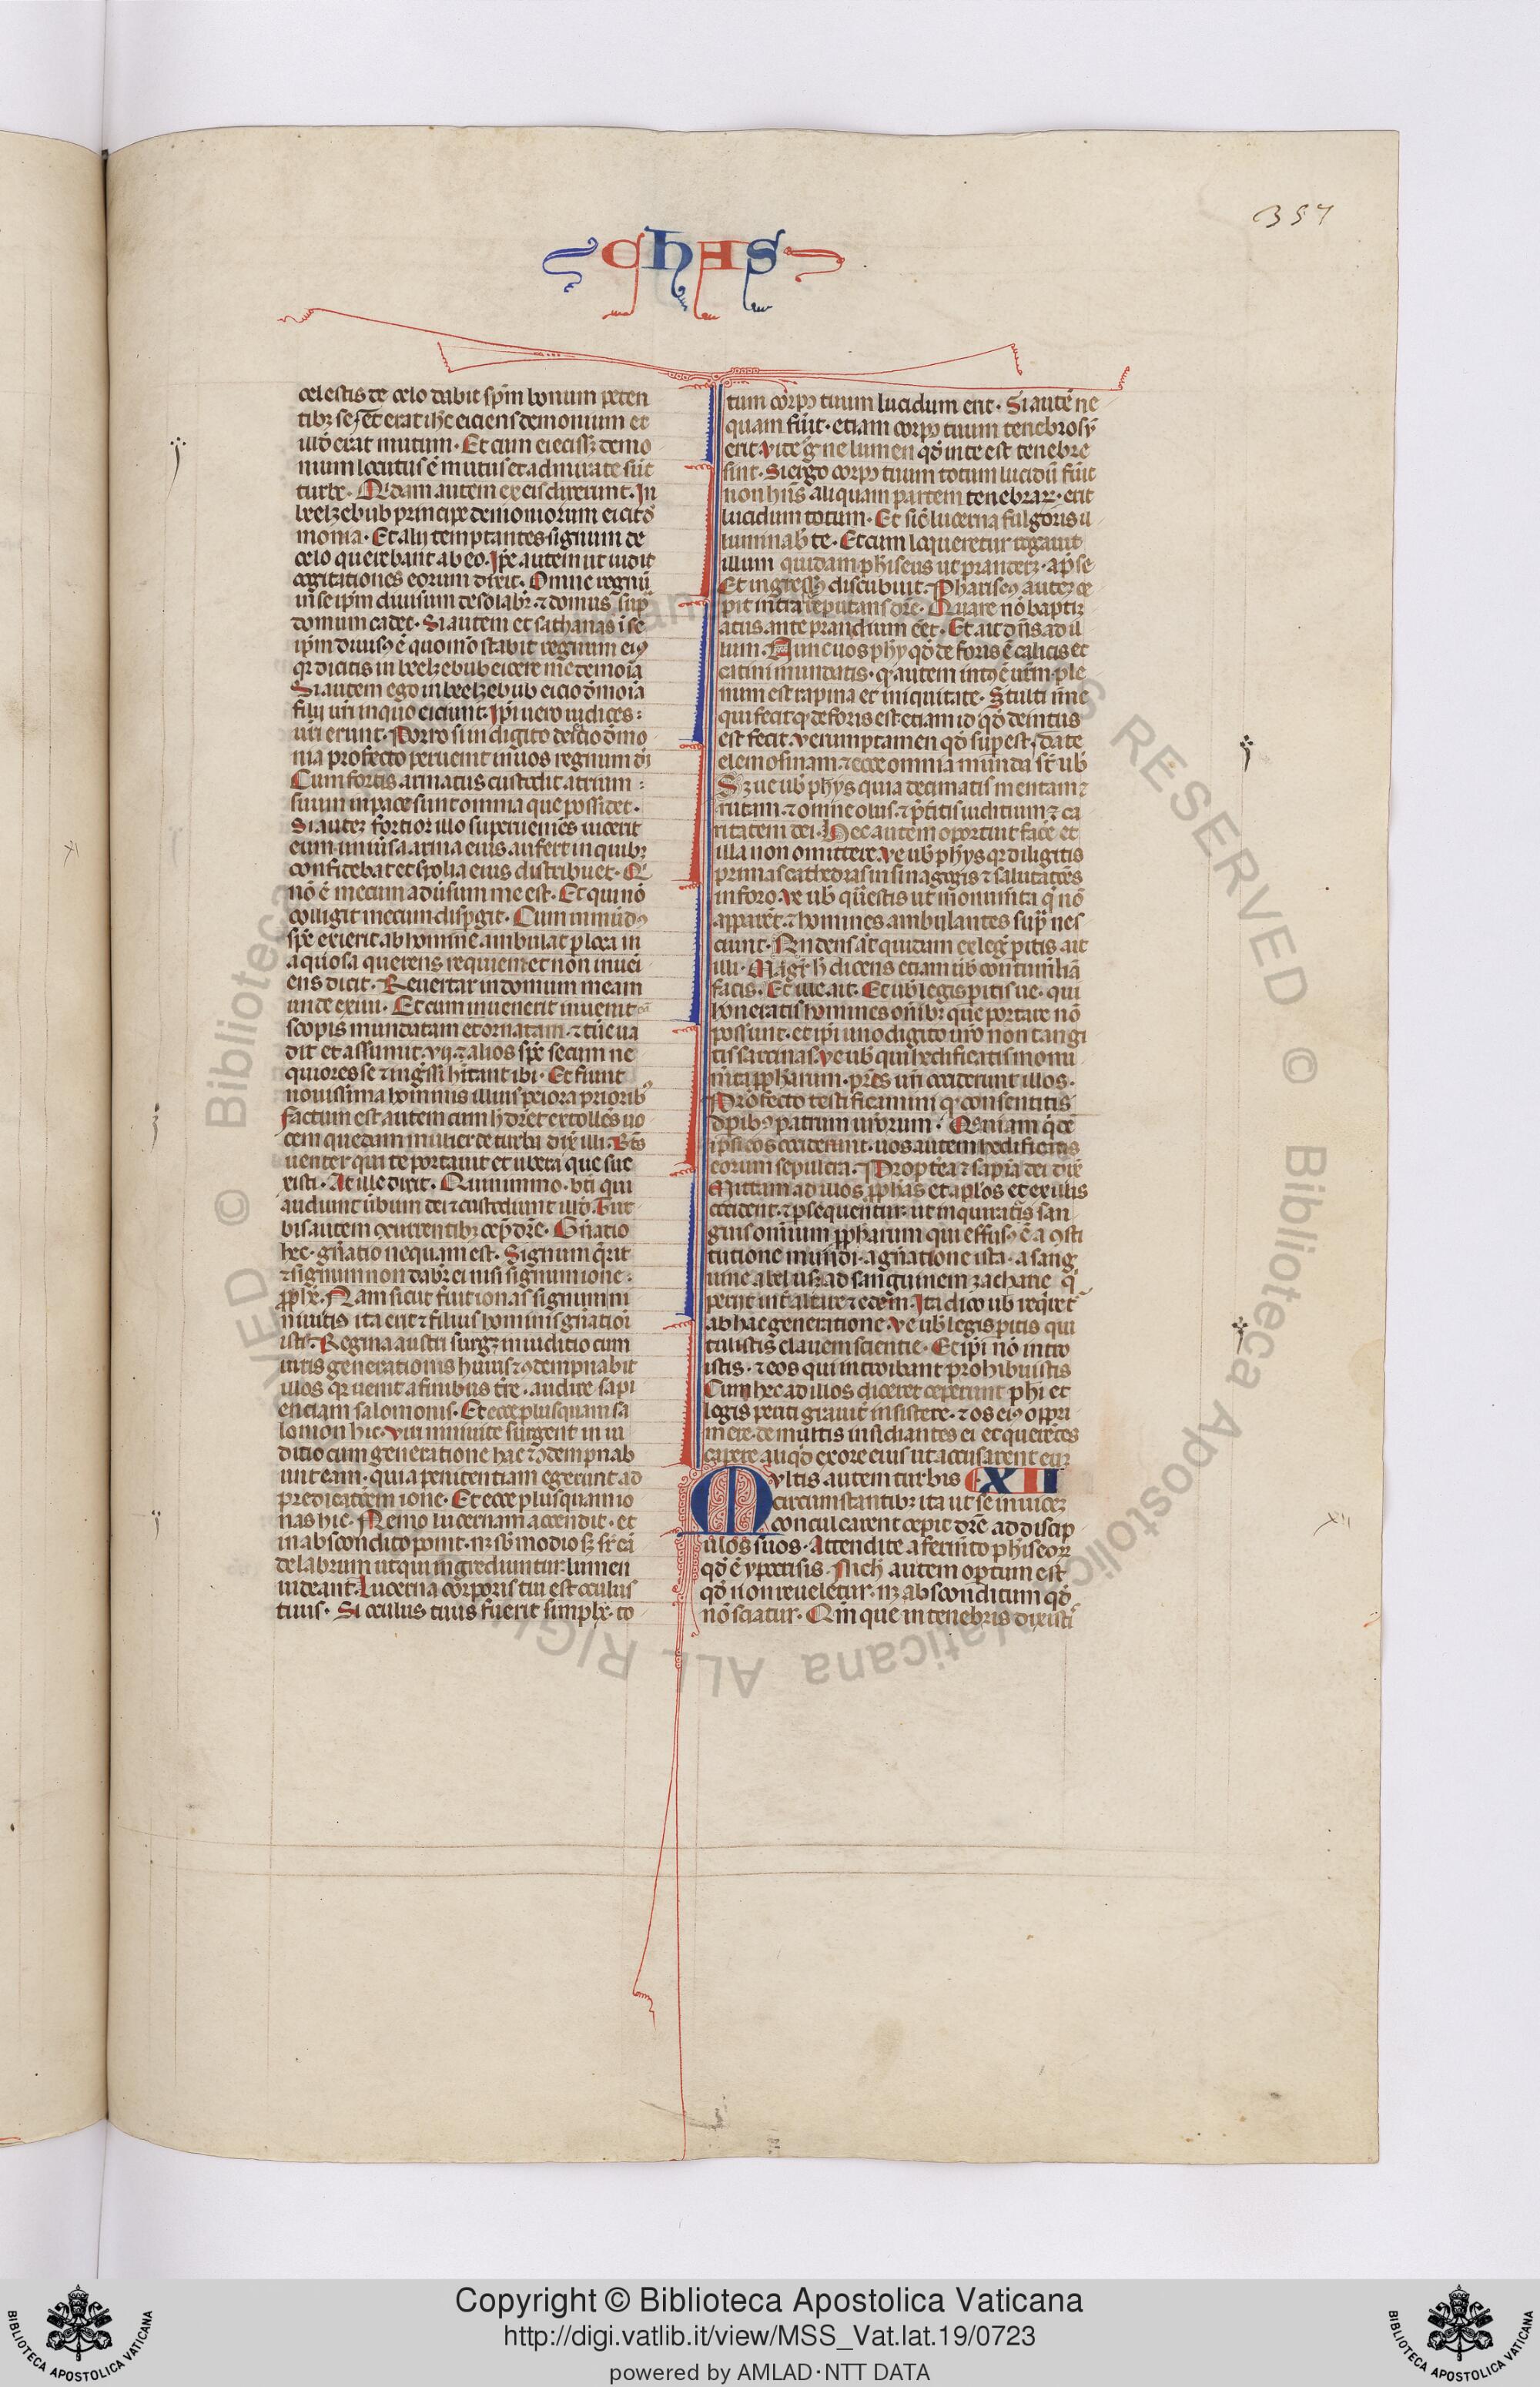 357
CHAS
celestis de celo dabit spm̄ bonum peten
tibꝫ se. Et erat ihc̄ eiciens demonium et
illđ erat mutum. Et cum eiecissꝫ demo
nium locutus ē mutus et admirate sūt
turbe. Qdam autem ex eis dixerunt. In
beelzebub principe demoniorum eicit đ
monia. Et alij temptantes signum de
celo querebant ab eo. Ipē autem ut uidit
cogitationes eorum dixit. Omne regnū
in se ipm̄ diuisum desolabr̄. ⁊ domus sup̄
domum cadet. Si autem et sathanas ī se
ipm̄ diuisꝰ ē quomō stabit regnum eiꝰ
qr dicitis in beelzebub eicere me demoīa
Si autem ego in beelzebub eicio đmoīa
filij ur̄i in quo eiciunt. Ipī uero iudices
ur̄i erunt. Porro si in digito dei eicio đmo
nia profecto peruenit in uos regnum di
Cum fortis armatus custodit atrium
suum in pace sunt omnia que possidet.
Si autez fortior illo superueniēs uicerit
eum uniūsa arma eius aufert in quibꝫ
confidebat et spolia eius distribuet. Q
nō ē mecum aduisum me est. Et qui nō
colligit mecum dispgit. Cum inmūdꝰ
spē exierit ab homine ambulat p loca in
aquosa querens requiem et non inueī
ens dicit. Reuertar in domum meam
unde exiui. Et cum inuenerit inuenit eā
scopis mundatam et ornatam. ⁊ tūc ua
dit et assumit. vij. ⁊ alios spē secum ne
quiores se ⁊ ingssi hītant ibi. Et fiunt
nouissima hominis illius peiora priorib
Factum est autem cum h dōret extollēs uo
cem quedam mulier de turba dix̄ illi. Btūs
uenter qui te portauit et ubera que suc
xisti. At ille dixit. Quinimmo. bti qui
audiunt ūbum dei ⁊ custodiunt illđ. Tur
bis autem ꝯcurrentibꝫ cep̄ dr̄e. Gn̄atio
hec. gn̄atio nequam est. Signum q̄rit
⁊ signum non dabr̄ ei nisi signum ione
pphē. Nam sicut fuit ionas signum ni
niuitis ita erit ⁊ filius hominis gn̄atioī
isti. Regina austri surgꝫ in iuditio cum
uiris generationis huius ⁊ ꝯdempnabit
illos qr uenit a finibus tr̄e. audire sapi
enciam salomonis. Et ecce plus quam sa
lomon hic. Viri niniuite surgent in iu
ditio cum generatione hac ⁊ ꝯdempnab
unt eam. quia penitentiam egerunt ad
predicatōem ione. Et ecce plus quam io
nas hic. Nemo lucernam accendit. et
in abscondito ponit. nꝫ sb modio sꝫ sr̄ cā
delabrum ut qui ingrediuntur lumen
uideant. Lucerna corporis tui est oculus
tuus. Si oculus tuus fuerit simplx̄. to
tum corpꝰ tuum lucidum erit. Si autē ne
quam fūit. etiam corpꝰ tuum tenebrosū
erit. Vide g̊ ne lumen qđ in te est tenebre
sint. Si ergo corpꝰ tuum totum lucidū fūit
non hn̄s aliquam partem tenebrarꝝ. erit
lucidum totum. Et sic̄ lucerna fulgoris il
luminab te. Et cum loqueretur rogauit
illum quidam phiseus ut pranderꝫ. ap̄ se
Et ingressꝰ discubuit. Phariseꝰ autez ce
pit intra se reputans dr̄e. Quare nō baptiz
atus ante prandium eēt. Et ait dn̄s ad il
lum. Nunc uos phy qđ de foris ē calicis et
catini mundatis. q autem intꝰ ē ur̄m. ple
num est rapina et iniquitate. Stulti nn̄e
qui fecit q de foris est etiam id qđ deintus
est fecit. Verumptamen qđ sup est. date
elemosinam ⁊ ecce omnia munda st̄ ub̄
Sꝫ ue ub̄ phys quia decimatis mentam ⁊
rutam. ⁊ omne olus. ⁊ p̄t̄itis iuditium ⁊ ca
ritatem dei. Hec autem oportuit face et
illa non omittere. Ve ub̄ phys qr diligitis
primas cathedras in sinagogis ⁊ salutatōes
in foro. Ve ub̄ qr̄ estis ut monumta q̄ nō
apparēt. ⁊ homines ambulantes sup̄ nes
ciunt. Rn̄dens at̄ quidam ex leg pitis ait
illi. Magr̄. h dicens etiam ub̄ contumliā
facis. Et ille ait. Et ub̄ legis pitis ue. qui
honeratis homines oīnibꝫ que portare nō
possunt. et ipī uno digito ur̄o non tangi
tis sarcinas. Ve ub̄ qui hedificatis monu
mta ppharum. prēs ur̄i occiderunt illos.
Profecto testificamini q consentitis
opibꝰ patrum ur̄orum. Qniam qdē
ipsi eos occiderunt. uos autem hedificatis
eorum sepulcra. Propterea ⁊ sapīa dei dix̄
Mittam ad illos pphas et aplos et ex illis
occident. ⁊ psequentur. ut inquiratr̄ san
guis omnium ppharum qui effusꝰ ē a ꝯsti
tutione mundi. a gn̄atione ista. a sang
uine abel usꝫ ad sanguinem zacharie. q
perijt int̄ altare ⁊ edem. Ita dico ub̄ req̄ret
ab hac generatione. Ve ub̄ legis pitis qui
tulistis clauem scientie. Et ipī nō intro
istis. ⁊ eos qui introibant prohibuistis
Cum hec ad illos diceret ceperunt phi et
legis periti grauit̄ insistere. ⁊ os eiꝰ oppri
mere. de multis insidiantes ei et querētes
capere aliqđ ex ore eius ut accusarent euꝫ
Mvltis autem turbis CXII
circumstantibꝫ ita ut se inuicez
conculcarent cepit dr̄e ad discip
ulos suos. Attendite a ferm̄to phiseorꝝ
qđ ē ypocrisis. Nich autem optum est
qđ non reueletur. nꝫ absconditum qđ
nō sciatur. Qm̄ que in tenebris dixisti
xii
Copyright © Biblioteca Apostolica Vaticana
http://digi.vatlib.it/view/MSS_Vat.lat.19/0723
powered by AMLAD·NTT DATA
BIBLIOTECA APOSTOLICA VATICANA
BIBLIOTECA APOSTOLICA VATICANA